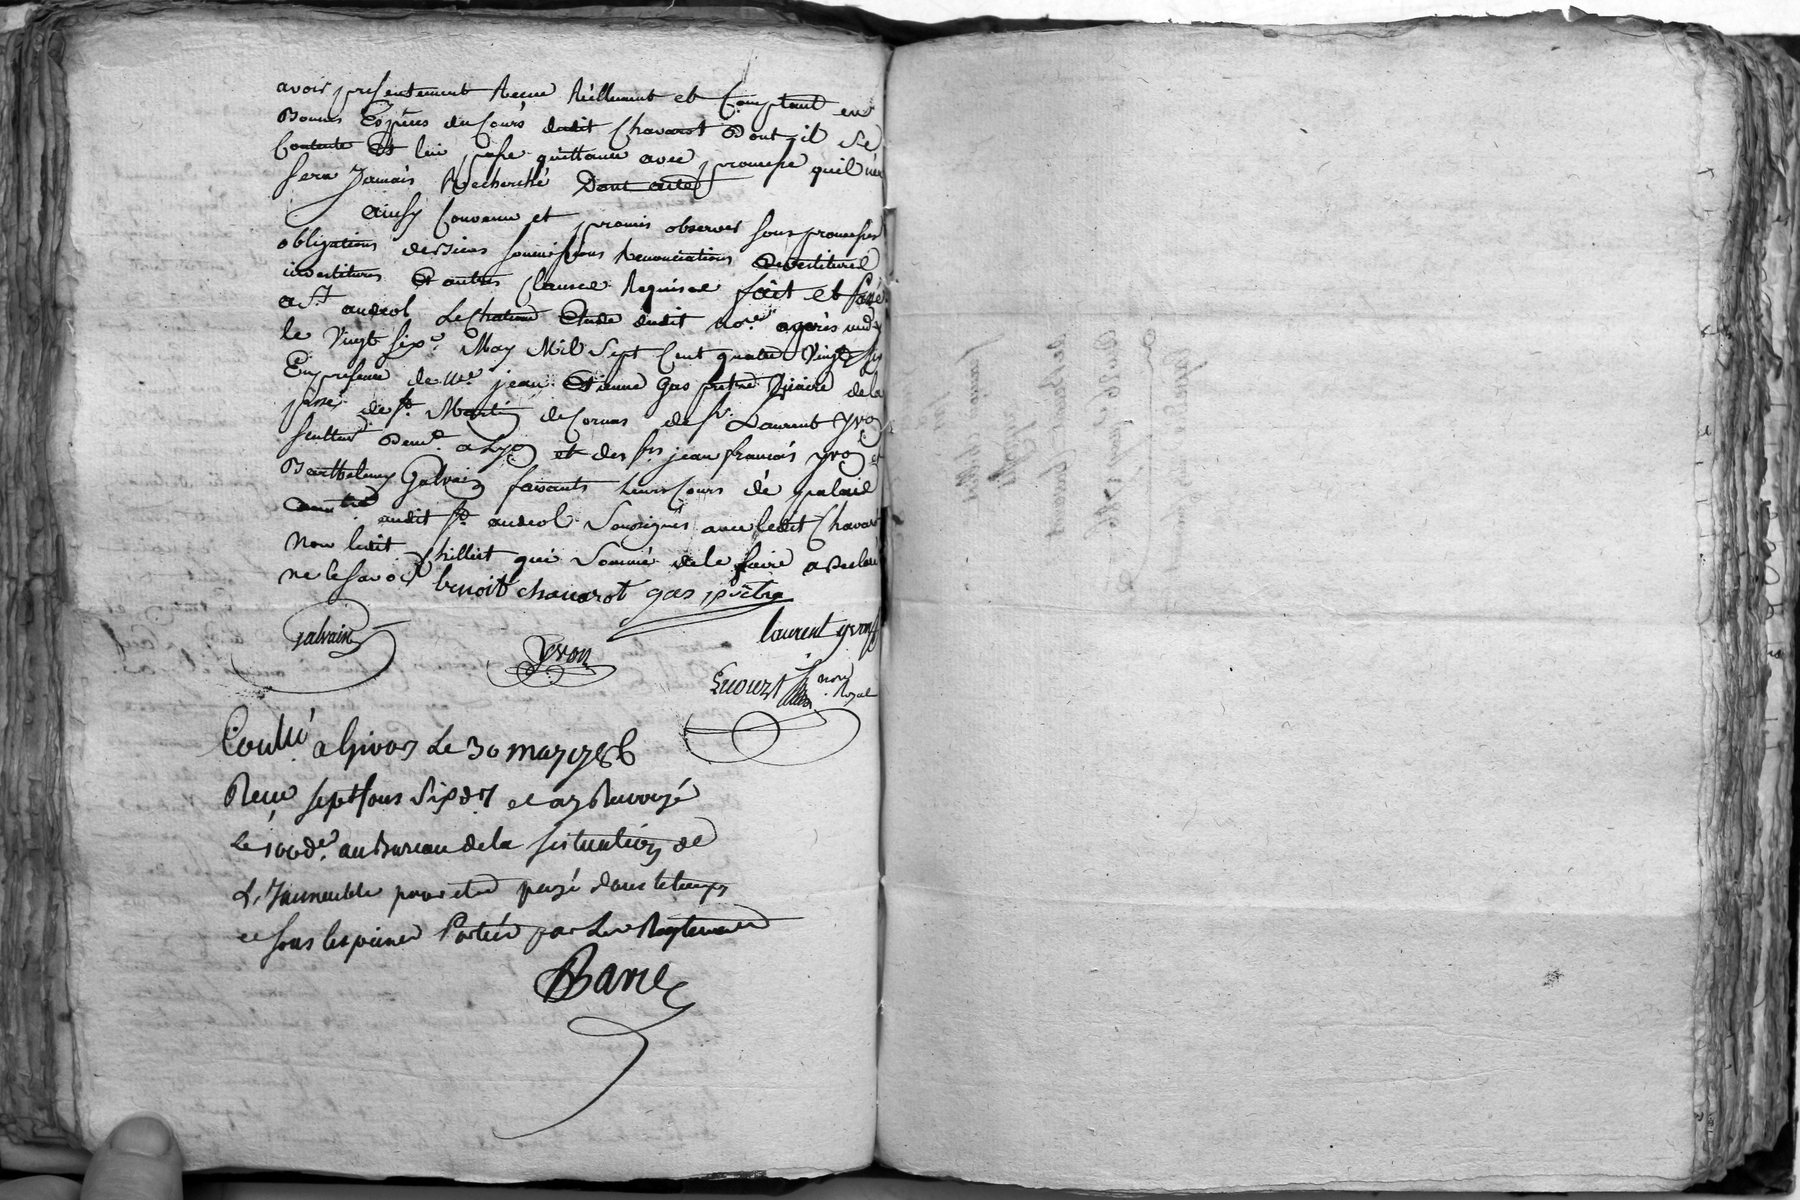 avoir presentement Receu Réellement et Comptant en
Bonnes Espèces du Cours dudit Chavarot Dont il se
Contente Et lui passe quittance avec promesse quil n'en
sera Jamais Recherché Dont acte
ainsy Convenu et promis observer sous promesses
obligations de Biens soumissions Renonciations devestitures
investitures Et autres Clauses Requises fait et passé
a St andeol Le Chateau Etude dudit No.re après midy
le Vingt six.e May Mil Sept Cent quatre Vingt six
En presence de M.e jean Etienne Gas pretre Vicaire de la
parr.e de St Martin de Cornas de Sr. Laurent Yvon
demt. a Lyon et des Srs jean francois yvon et
Barthelemy Galvain faisants leurs Cours de palais
audit St andeol Soussignés avec ledit Chavarot
Non ledit Thillet qui Sommé de le faire a Declaré
ne le savoir benoit chavarot gas prètre
galvain
Yvon
laurent yvon
nore Royal
Conllé a Givors Le 30 may 1786
Receu sept sous Six d. et ay Renvoyé
Le 100de. au Bureau de la situation de
L'Immeuble pour etre payé dans le temps
et sous les peines Portées par Les Reglements
Barre